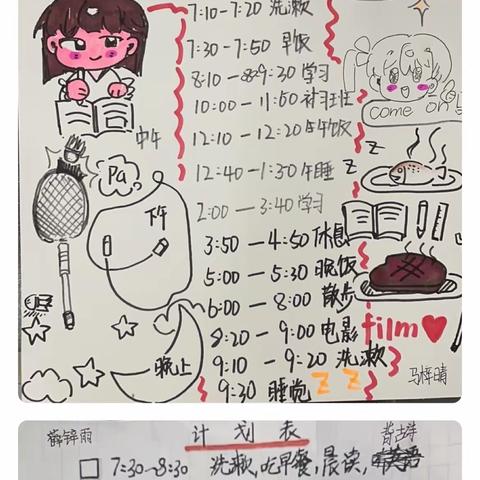 7:10-7:20 洗漱
7:30-7:50 早饭
8:10-9:30 学习
come on!
10:00-11:50 补习班
中午
12:10-12:20 午饭
Pa
12:40-1:30 午睡
Z
Z
下午
2:00-3:40 学习
3:50-4:50 休息
5:00-5:30 晚饭
6:00-8:00 散步
8:20-9:00 电影
film
晚上
9:10-9:20 洗漱
9:30 睡觉 Z Z
马梓晴
计划表
7:30-8:30 洗漱,吃早餐,晨读,